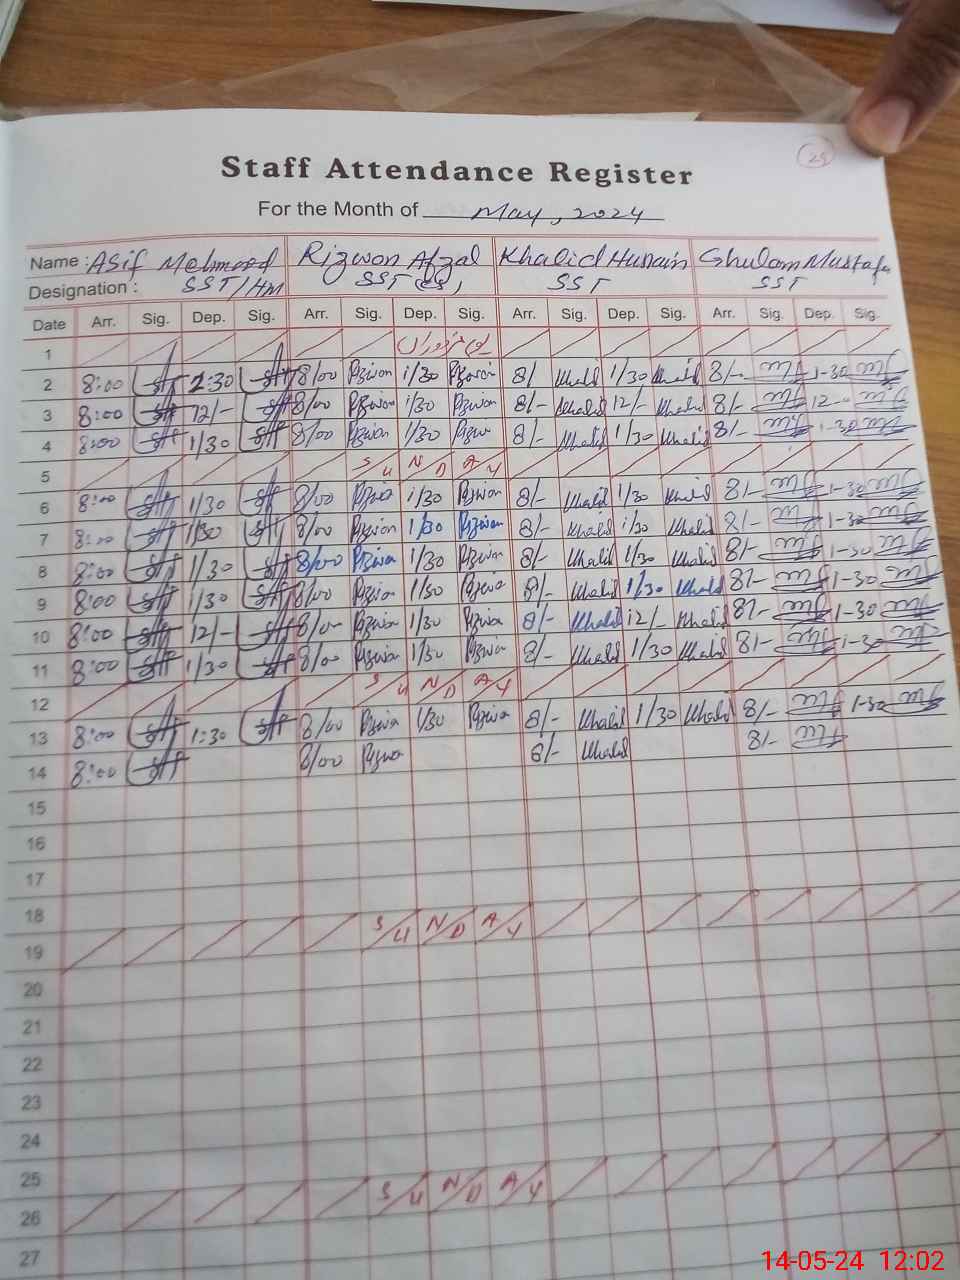 25
Staff Attendance Register
For the Month of May, 2024
Name : Asif Mehmood Rizwan Afzal Khalid Hussain Ghulam Mustafa
Designation : SST/HM SST (CS) SST SST
Date Arr. Sig. Dep. Sig. Arr. Sig. Dep. Sig. Arr. Sig. Dep. Sig. Arr. Sig. Dep. Sig.
1
2 8:00 2:30 8/00 Rizwan 1/30 Rizwan 8/- Khalid 1/30 Khalid 8/- 1-30
3 8:00 12/- 8/00 Rizwan 1/30 Rizwan 8/- Khalid 12/- Khalid 8/- 12-
4 8:00 1/30 8/00 Rizwan 1/30 Rizwa 8/- Khalid 1/30 Khalid 8/- 1-30
5 SUNDAY
6 8:00 1/30 8/00 Rizwa 1/30 Rizwan 8/- Khalid 1/30 Khalid 8/- 1-30
7 8:00 1/30 8/00 Rizwan 1/30 Rizwan 8/- Khalid 1/30 Khalid 8/- 1-30
8 8:00 1/30 8/00 Rizwan 1/30 Rizwan 8/- Khalid 1/30 Khalid 8/- 1-30
9 8:00 1/30 8/00 Rizwan 1/30 Rizwa 8/- Khalid 1/30 Khalid 8/- 1-30
10 8:00 12/- 8/00 Rizwan 1/30 Rizwan 8/- Khalid 12/- Khalid 8/- 1-30
11 8:00 1/30 8/00 Rizwan 1/30 Rizwan 8/- Khalid 1/30 Khalid 8/- 1-30
12 SUNDAY
13 8:00 1:30 8/00 Rizwa 1/30 Rizwa 8/- Khalid 1/30 Khalid 8/- 1-30
14 8:00 8/00 Rizwa 8/- Khalid 8/-
15
16
17
18
19 SUNDAY
20
21
22
23
24
25
26 SUNDAY
27
14-05-24 12:02